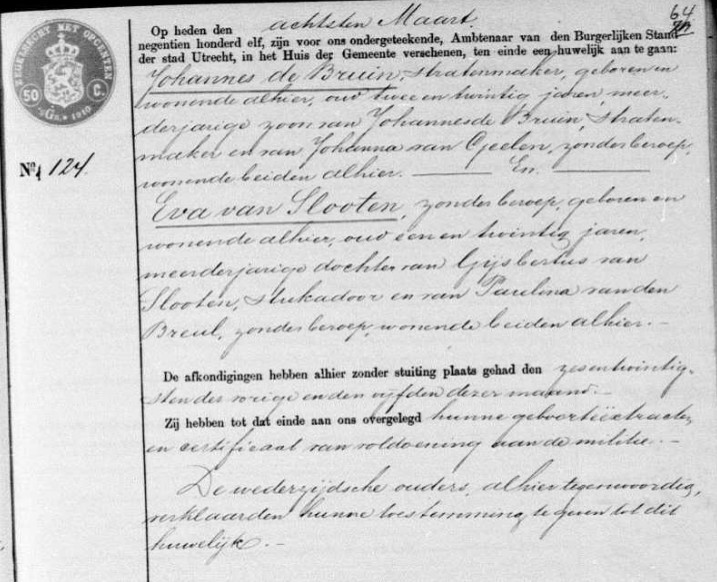 64
Op heden den achtsten Maart.
negentien honderd elf, zijn voor ons ondergeteekende, Ambtenaar van den Burgerlijken Stand
der stad Utrecht, in het Huis der Gemeente verschenen, ten einde een huwelijk aan te gaan:
Johannes de Bruin, stratenmaker, geboren en
wonende alhier, oud twee en twintig jaren, meer-
derjarige zoon van Johannes de Bruin, straten-
maker en van Johanna van Geelen, zonder beroep,
wonende beiden alhier. ——— En. ———
50 C.
1910
No. 124
Eva van Slooten, zonder beroep, geboren en
wonende alhier, oud een en twintig jaren,
meerderjarige dochter van Gijsbertus van
Slooten, stukadoor en van Paulina van den
Breul, zonder beroep, wonende beiden alhier. —
De afkondigingen hebben alhier zonder stuiting plaats gehad den zesentwintig-
sten der vorige en den vijfden dezer maand. —
Zij hebben tot dat einde aan ons overgelegd hunne geboorteëxtracten
en certificaat van voldoening aan de militie. —
De wederzijdsche ouders, alhier tegenwoordig,
verklaarden hunne toestemming te geven tot dit
huwelijk. —